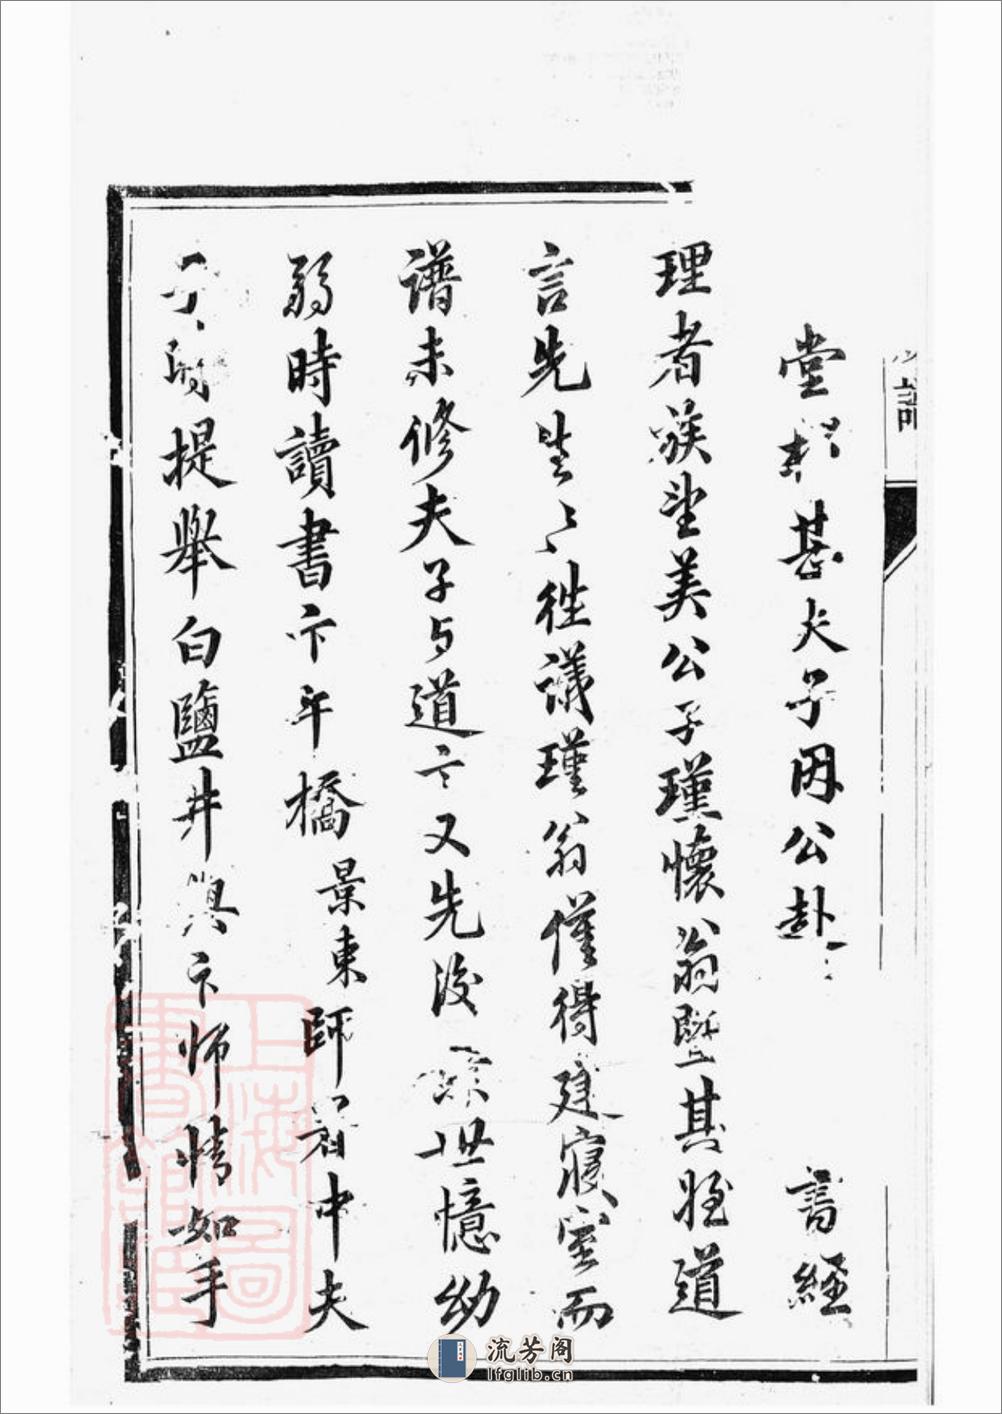 堂 甚夫子因公卦 書經
理者族望美公子瑾懷翁暨其姪道
言先生〻徃議瑾翁僅得建寢室而
譜未修夫子与道言又先後 世憶幼
弱時讀書卞年橋景東師署中夫
子 提舉白鹽井與卞師情如手
譜
上海圖書館藏
流芳阁
lfglib.cn